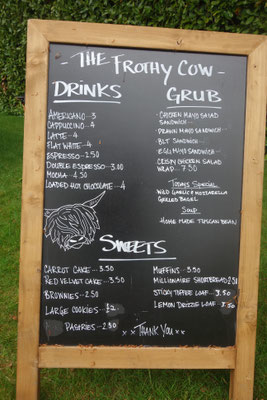 - THE FROTHY COW -
DRINKS
AMERICANO - 3
CAPPUCCINO - 4
LATTE - 4
FLAT WHITE - 4
ESPRESSO - 2.50
DOUBLE ESPRESSO - 3.00
MOCHA - 4.50
LOADED HOT CHOCOLATE - 4
GRUB
CHICKEN MAYO SALAD
SANDWICH -
PRAWN MAYO SANDWICH -
BLT SANDWICH -
EGG MAYO SANDWICH -
CRISPY CHICKEN SALAD
WRAP - 7.50
TODAYS SPECIAL
WILD GARLIC & MOZZARELLA
GRILLED BAGEL
SOUP
HOME MADE TUSCAN BEAN
SWEETS
CARROT CAKE - 3.50
RED VELVET CAKE - 3.50
BROWNIES - 2.50
LARGE COOKIES - £2
PASTRIES - 2.50
MUFFINS - 3.50
MILLIONAIRE SHORTBREAD 2.50
STICKY TOFFEE LOAF - 3.50
LEMON DRIZZLE LOAF - 3.50
x x THANK YOU x x